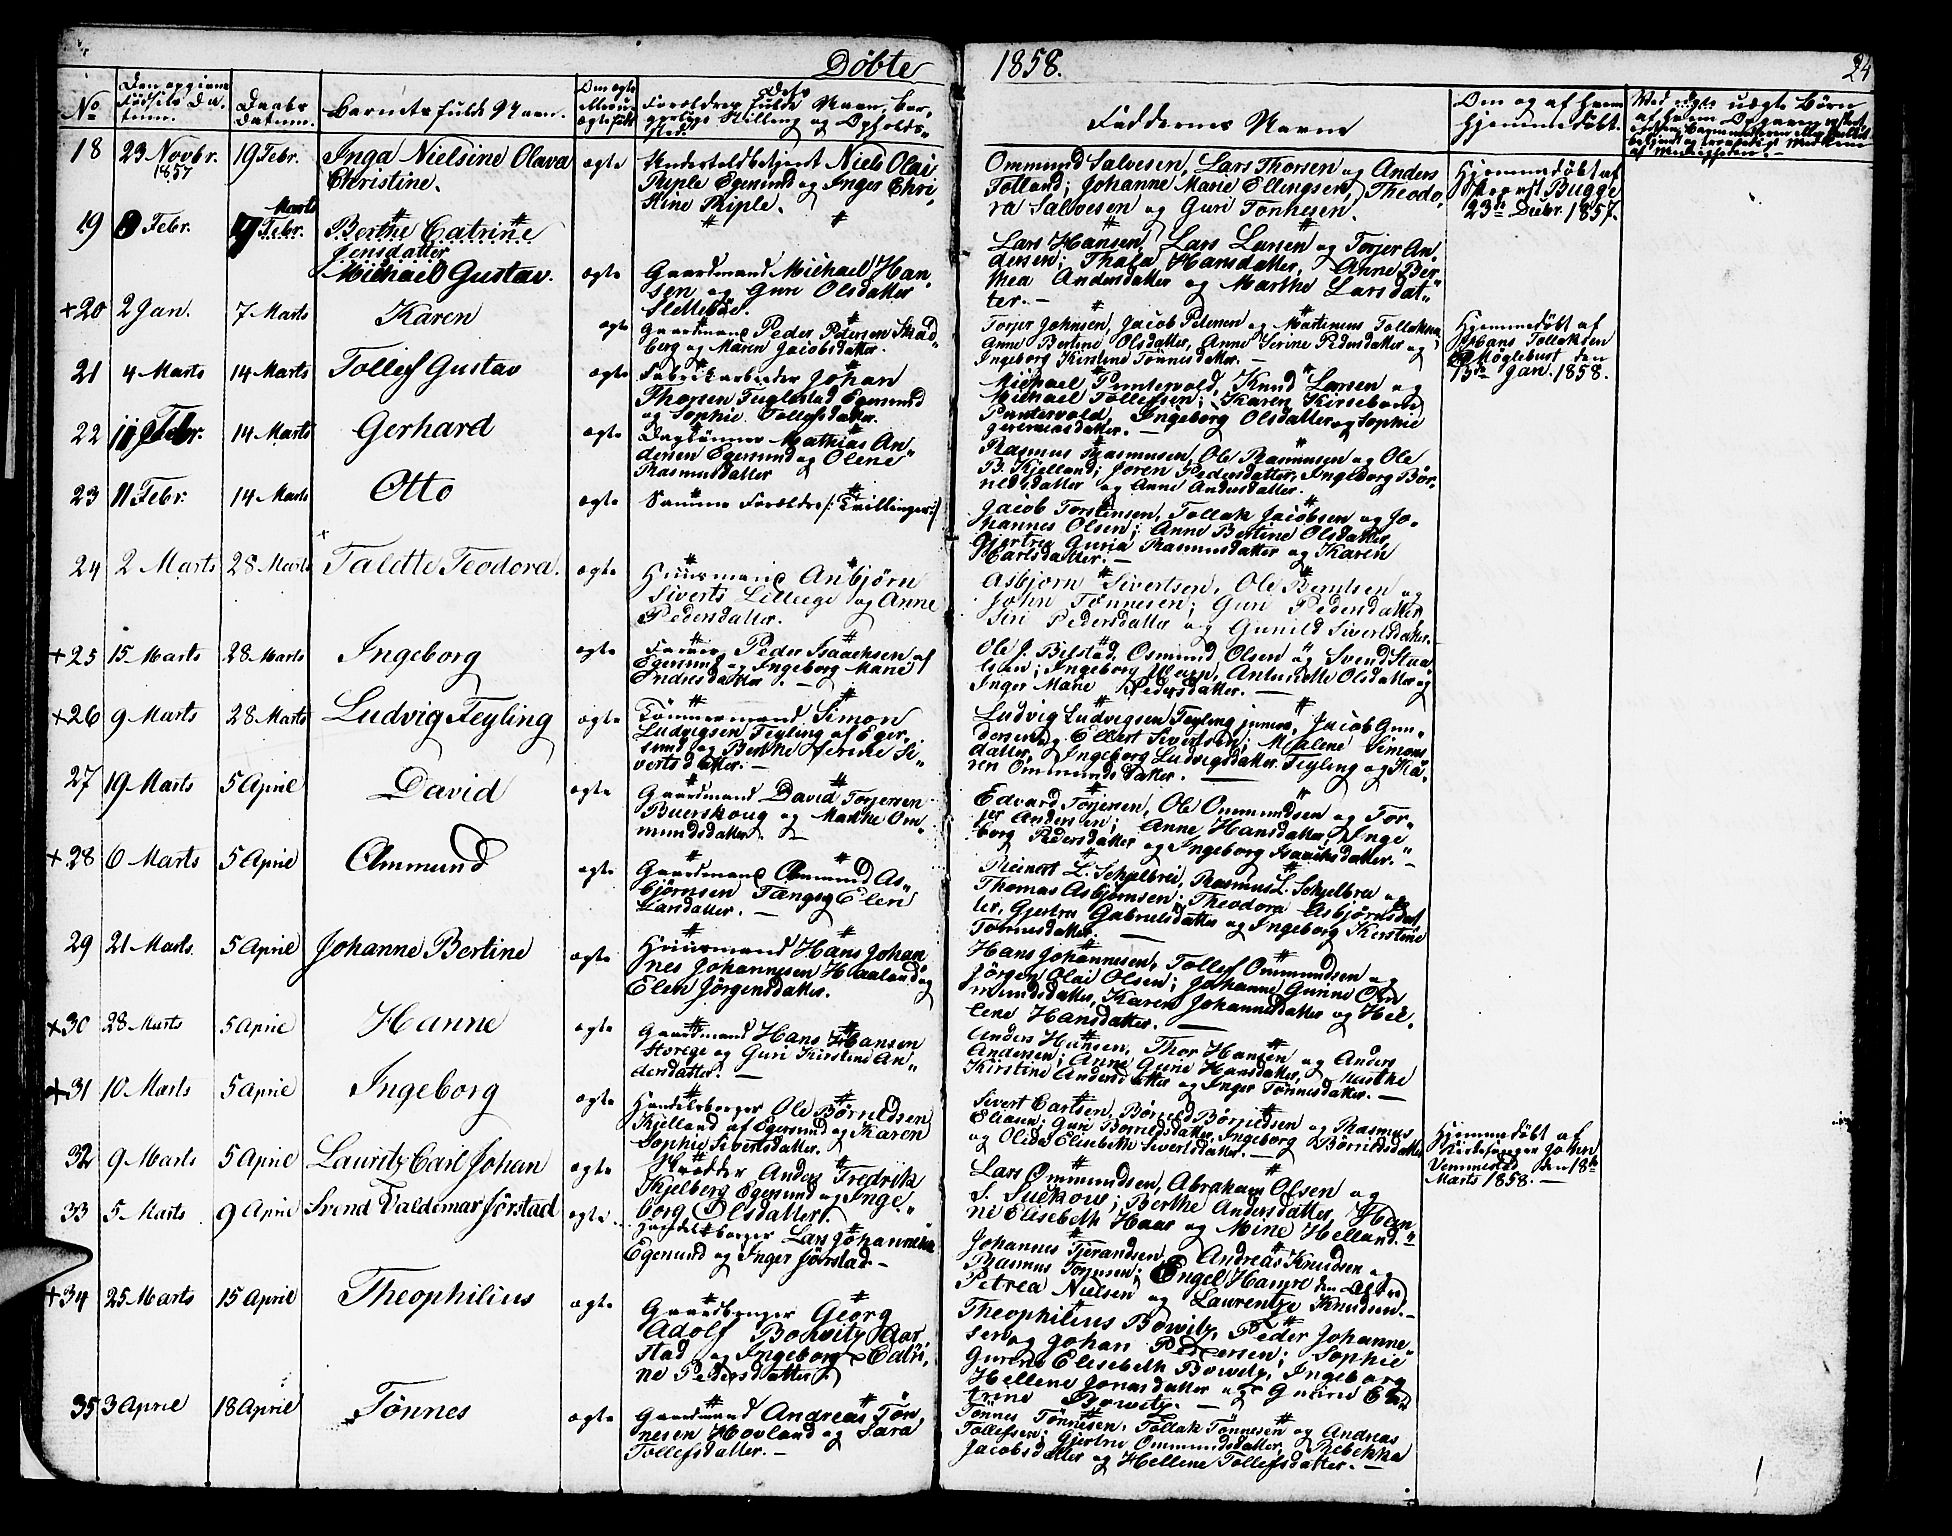 Døbte 1858. 24
No
Den opgivne Fødsels Datum.
Daabs Datum.
Barnets fulde Navn.
Om ægte eller uægte født
Forældres fulde Navn, borgerlige Stilling og Opholdssted.
Faddernes Navne
Om og af hvem hjemmedøbt.
Ved uægte Børn
18 23 Novbr. 1857 19 Febr. Inga Nielsine Olava
Christine.
ægte
Undertoldbetjent Niels Olai
Riple Egersund og Inger Chri-
stine Riple.
Ommund Salvesen, Lars Thorsen og Anders
Totland; Johanne Marie Ellingsen, Theodo-
ra Salvesen og Guri Tønnesen.
Hjemmedøbt af
Provst Bugge
23de Decbr. 1857.
19 8 Febr. 7 Marts Febr. Berthe Catrine
Jensdatter
Michael Gustav.
ægte
Gaardmand Michael Han-
sen og Guri Olsdatter
Slettebøe.
Lars Hansen, Lars Larsen og Torjer An-
dersen; Thala Hansdatter, Anne Ber-
thea Andersdatter og Marthe Larsdat-
ter. —
+20 2 Jan. 7 Marts Karen
ægte
Gaardmand Peder Petersen Skad-
berg og Maren Jacobsdatter.
Torjer Johnsen, Jacob Petersen og Martinius Tollaksen
Anne Bertine Olsdatter, Anne Serine Pedersdatter og
Ingeborg Kirstine Tønnesdatter. —
Hjemmedøbt af
Hans Tollaksen
Møglebust den
13de Jan. 1858.
21 4 Marts 14 Marts Tollef Gustav
ægte
Fabrikarbeider Johan
Thorsen Fuglestad Egersund
og Sophie Tollefsdatter.
Michael Puntervold, Knud Larsen og
Michael Tollefsen; Karen Kirseboe
Puntervold, Ingeborg Olsdatter og Sophie
Jeremiasdatter. —
22 11 Febr. 14 Marts Gerhard
ægte
Daglønner Mathias An-
dersen Egersund og Olene
Rasmusdatter
Rasmus Rasmusen, Ole Rasmusen og Ole
B. Kjelland; Joren Pedersdatter, Ingeborg Bør-
nedsdatter og Anne Andersdatter.
23 11 Febr. 14 Marts Otto
ægte
Samme Forældre /: Tvillinger :/
Jacob Torstensen, Tollak Jacobsen og Jo-
hannes Olsen; Anne Bertine Olsdatter,
Gjertru Guria Rasmusdatter og Karen
Karlsdatter. —
24 2 Marts 28 Marts Talette Teodora.
ægte
Huusmand Asbjørn
Siverts Lilleege og Anne
Pedersdatter.
Asbjørn Sivertsen, Ole Berntsen og
John Tønnesen; Guri Pedersdatter
Siri Pedersdatter og Gunild Sivertsdatter.
+25 15 Marts 28 Marts Ingeborg
ægte
Farver Peder Isaachsen af
Egersund og Ingeborg Marie
Endresdatter. —
Ole J. Bilstad, Osmund Olsen og Svend Sva-
lesen; Ingeborg Meyer, Antonette Olsdatter og
Inger Marie Pedersdatter. —
+26 9 Marts 28 Marts Ludvig Feyling
ægte
Tømmermand Simon
Ludvigsen Feyling af Eger-
sund og Berthe Serine Si-
vertsdatter. —
Ludvig Ludvigsen Feyling junior, Jacob Gun-
dersen og Ellert Sivertsen; Malene Simons
datter, Ingeborg Ludvigsdatter Feyling og Ka-
ren Ommundsdatter. —
27 19 Marts 5 April David
ægte
Gaardmand David Torjersen
Buerskoug og Marthe Om-
mundsdatter. —
Edvard Torjersen, Ole Ommundsen og Tor-
jer Andersen; Anne Hansdatter, Inge-
borg Pedersdatter og Ingeborg Isaachsdatter. —
+28 6 Marts 5 April Ommund
ægte
Gaardmand Ommund As-
bjørnsen Tengs og Elen
Larsdatter. —
Reinert L. Schjelbrei, Rasmus L. Schjelbrei og
Thomas Asbjørnsen; Theodora Asbjørnsdat-
ter, Gjertru Gabrielsdatter og Ingeborg Kirstine
Tønnesdatter. —
29 21 Marts. 5 April Johanne Bertine
ægte
Huusmand Hans Johan-
nes Johannesen Haaland og
Elen Jørgensdatter.
Hans Johannesen, Tollef Ommundsen og
Jørgen Olai Olsen; Johanne Gurine Om-
mundsdatter, Karen Johannesdatter og Hel-
lene Hansdatter. —
+30 28 Marts 5 April Hanne
ægte
Gaardmand Hans Hansen
Storeege og Guri Kirstine An-
dersdatter. —
Anders Hansen, Thor Hansen og Anders
Andersen; Anne Gurie Hansdatter, Marthe
Kirstine Andersdatter og Inger Tønnesdatter. —
+31 10 Marts 5 April Ingeborg
ægte
Handelsborger Ole Børnildsen
Kjelland af Egersund og Karen
Sophie Sivertsdatter.
Sivert Carlsen, Børnild Børnildsen og Rasmus
Eliasen; Guri Børnildsdatter, Ingeborg Børnildsdatter
og Olede Elisebeth Sivertsdatter. —
32 9 Marts 5 April Lauritz Carl Johan
ægte
Skrædder Anders Fredrik
Kjelberg Egersund og Inge-
borg Olsdatter.
Lars Ommundsen, Abraham Olsen og
S. Suckow; Berthe Andersdatter, Han-
ne Elisebeth Haar og Mine Helland.
Hjemmedøbt af
Kirkesanger Johan
Vemmestad den 18de
Marts 1858. —
33 5 Marts 9 April Svend Valdemar Jørstad
ægte
Handelsborger Lars Johannesen
Egersund og Inger Jørstad —
Johannes Tjerandsen, Andreas Knudsen og
Rasmus Torjusen; Engel Hamre den ældre
Petrea Nielsen og Laurentze Knudsen. —
+34 25 Marts 15 April Theophilius
ægte
Gaardbruger Georg
Adolf Bowitz Aar-
stad og Ingeborg Catri-
ne Pedersdatter
Theophilius Bowitz, Peder Johanne-
sen og Johan Pedersen; Sophie
Gurine Elisebeth Bowitz, Ingeborg
Hellene Jonasdatter og Gurine Ca-
trine Bowitz. —
35 3 April 18 April Tønnes
ægte
Gaardmand Andreas Tøn-
nesen Hovland og Sara
Tollefsdatter. —
Tønnes Tønnesen, Tollak Tønnesen og Andreas
Tollefsen; Gjertru Ommundsdatter, Rebekka
Jacobsdatter og Hellene Tollefsdatter. —